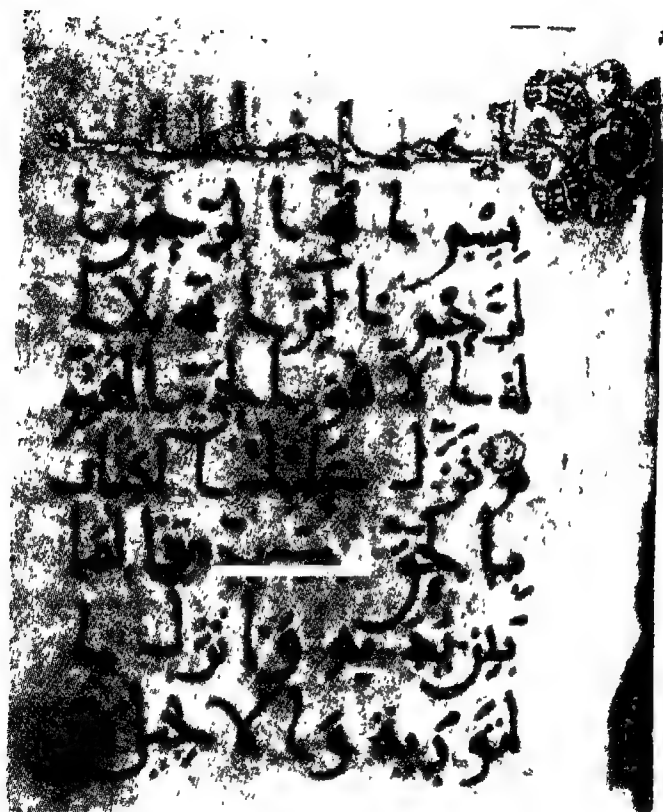 بسم الله الرحمن ا
لرحيم الم الله لا ا
له الا هو الحي القيو
م نزل عليك الكتب
بالحق مصدقا لما
بين يديه وانزل ا
لتورية والانجيل